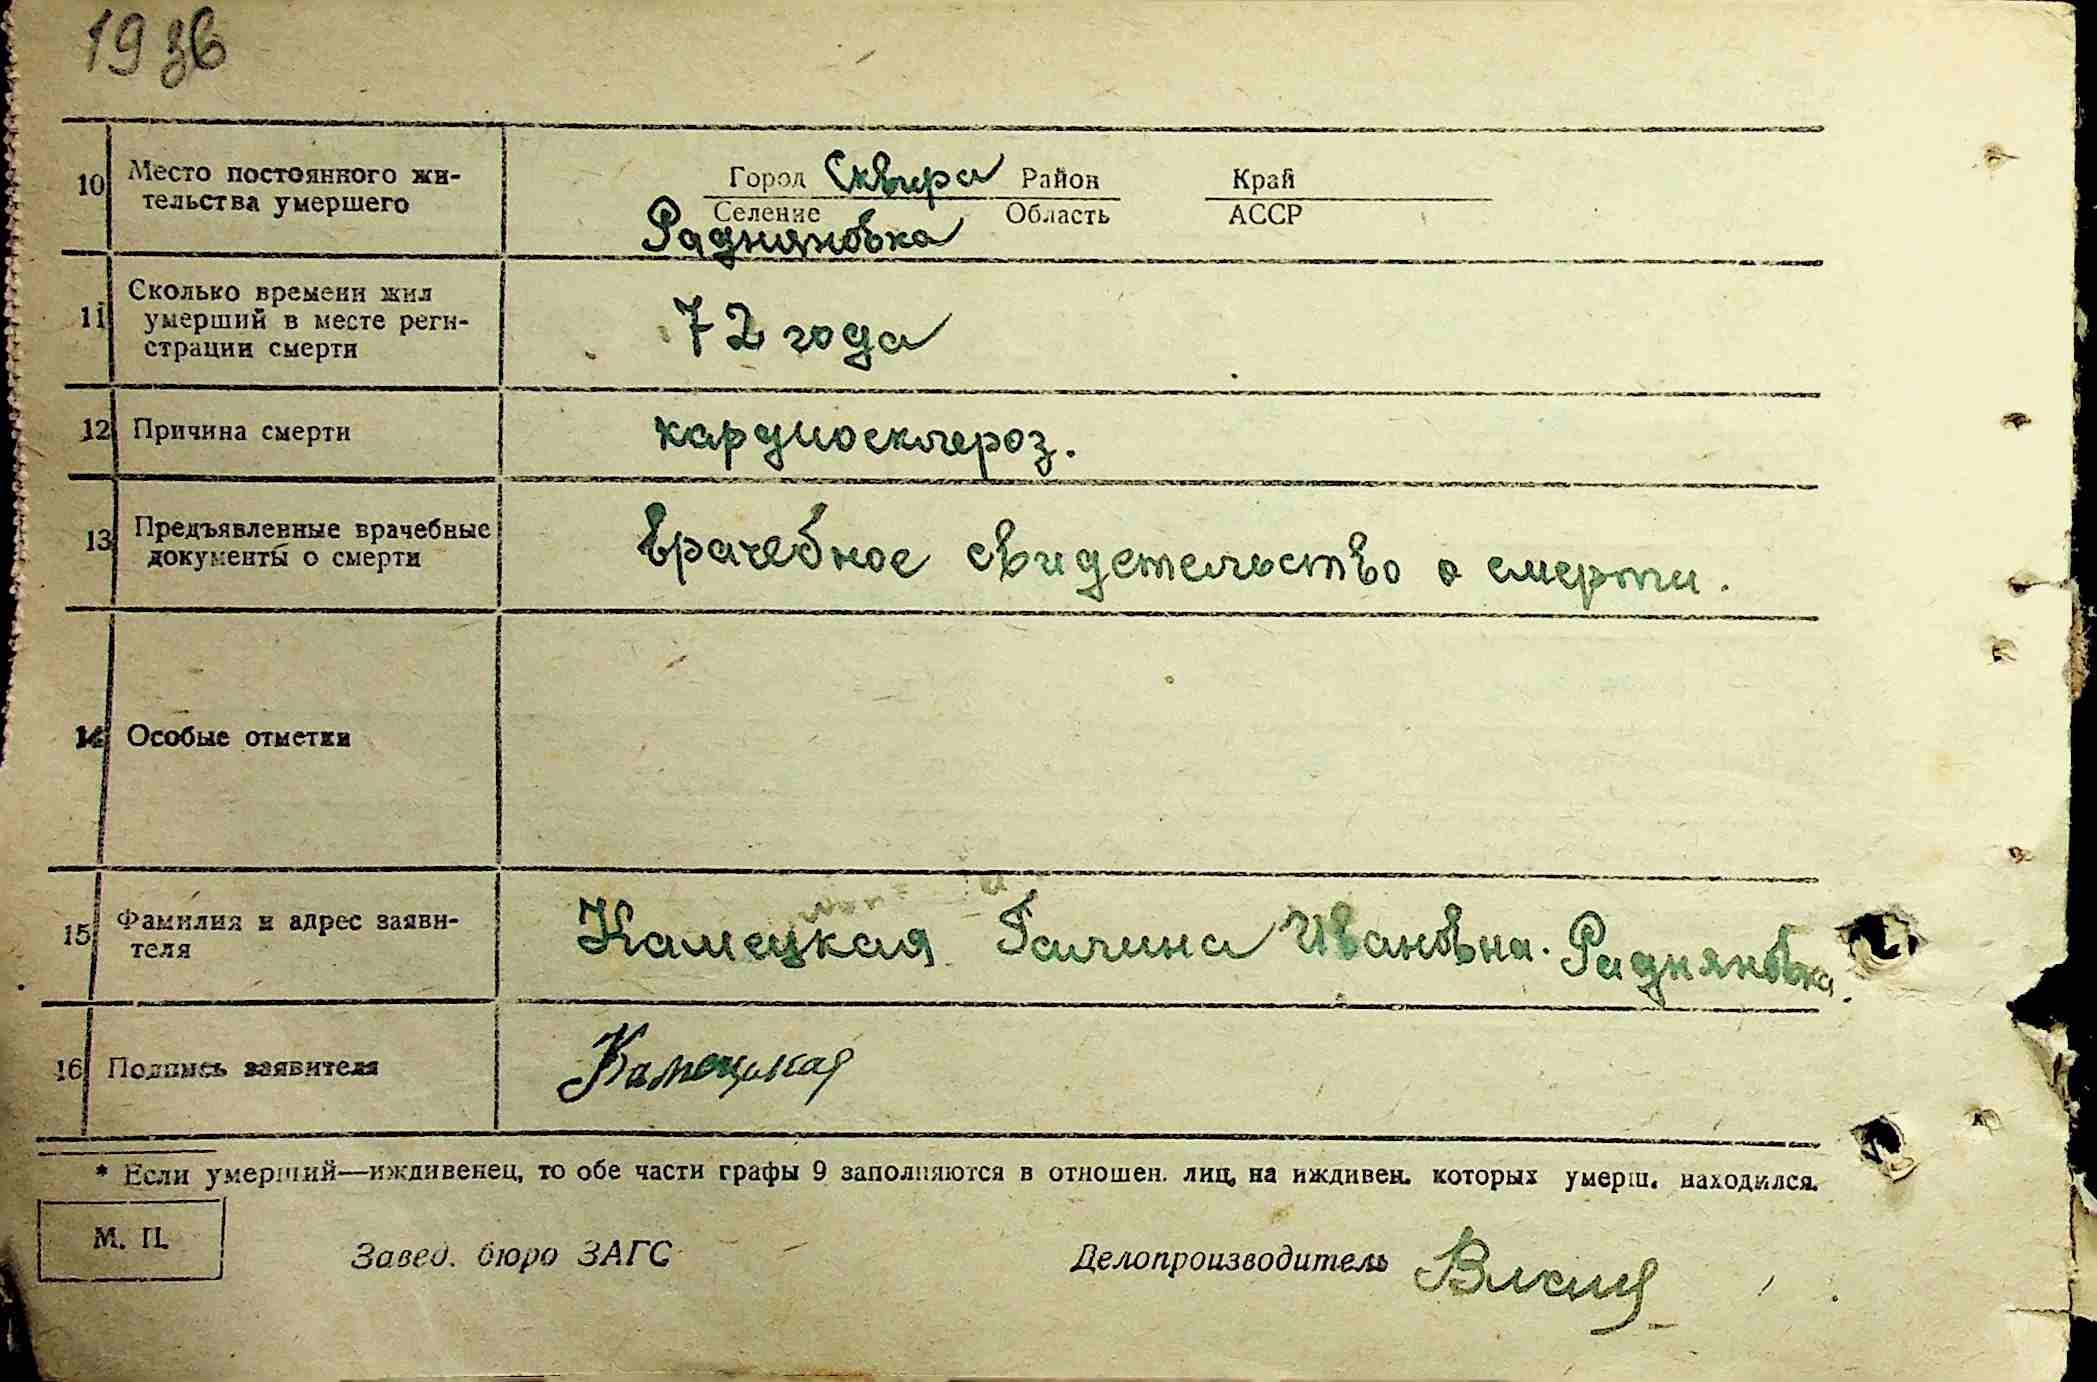 1936
10 Место постоянного жи-
тельства умершего
Город Сквира Район Край
Селение Область АССР
Радняновка
11 Сколько времени жил
умерший в месте реги-
страции смерти
72 года
12 Причина смерти
кардиосклероз.
13 Предъявленные врачебные
документы о смерти
Врачебное свидетельство о смерти.
14 Особые отметки
15 Фамилия и адрес заяви-
теля
Камецкая Галина Ивановна. Радняновка.
16 Подпись заявителя
Камецкая
* Если умерший—иждивенец, то обе части графы 9 заполняются в отношен. лиц, на иждивен. которых умерш. находился.
М. П.
Завед. бюро ЗАГС
Делопроизводитель